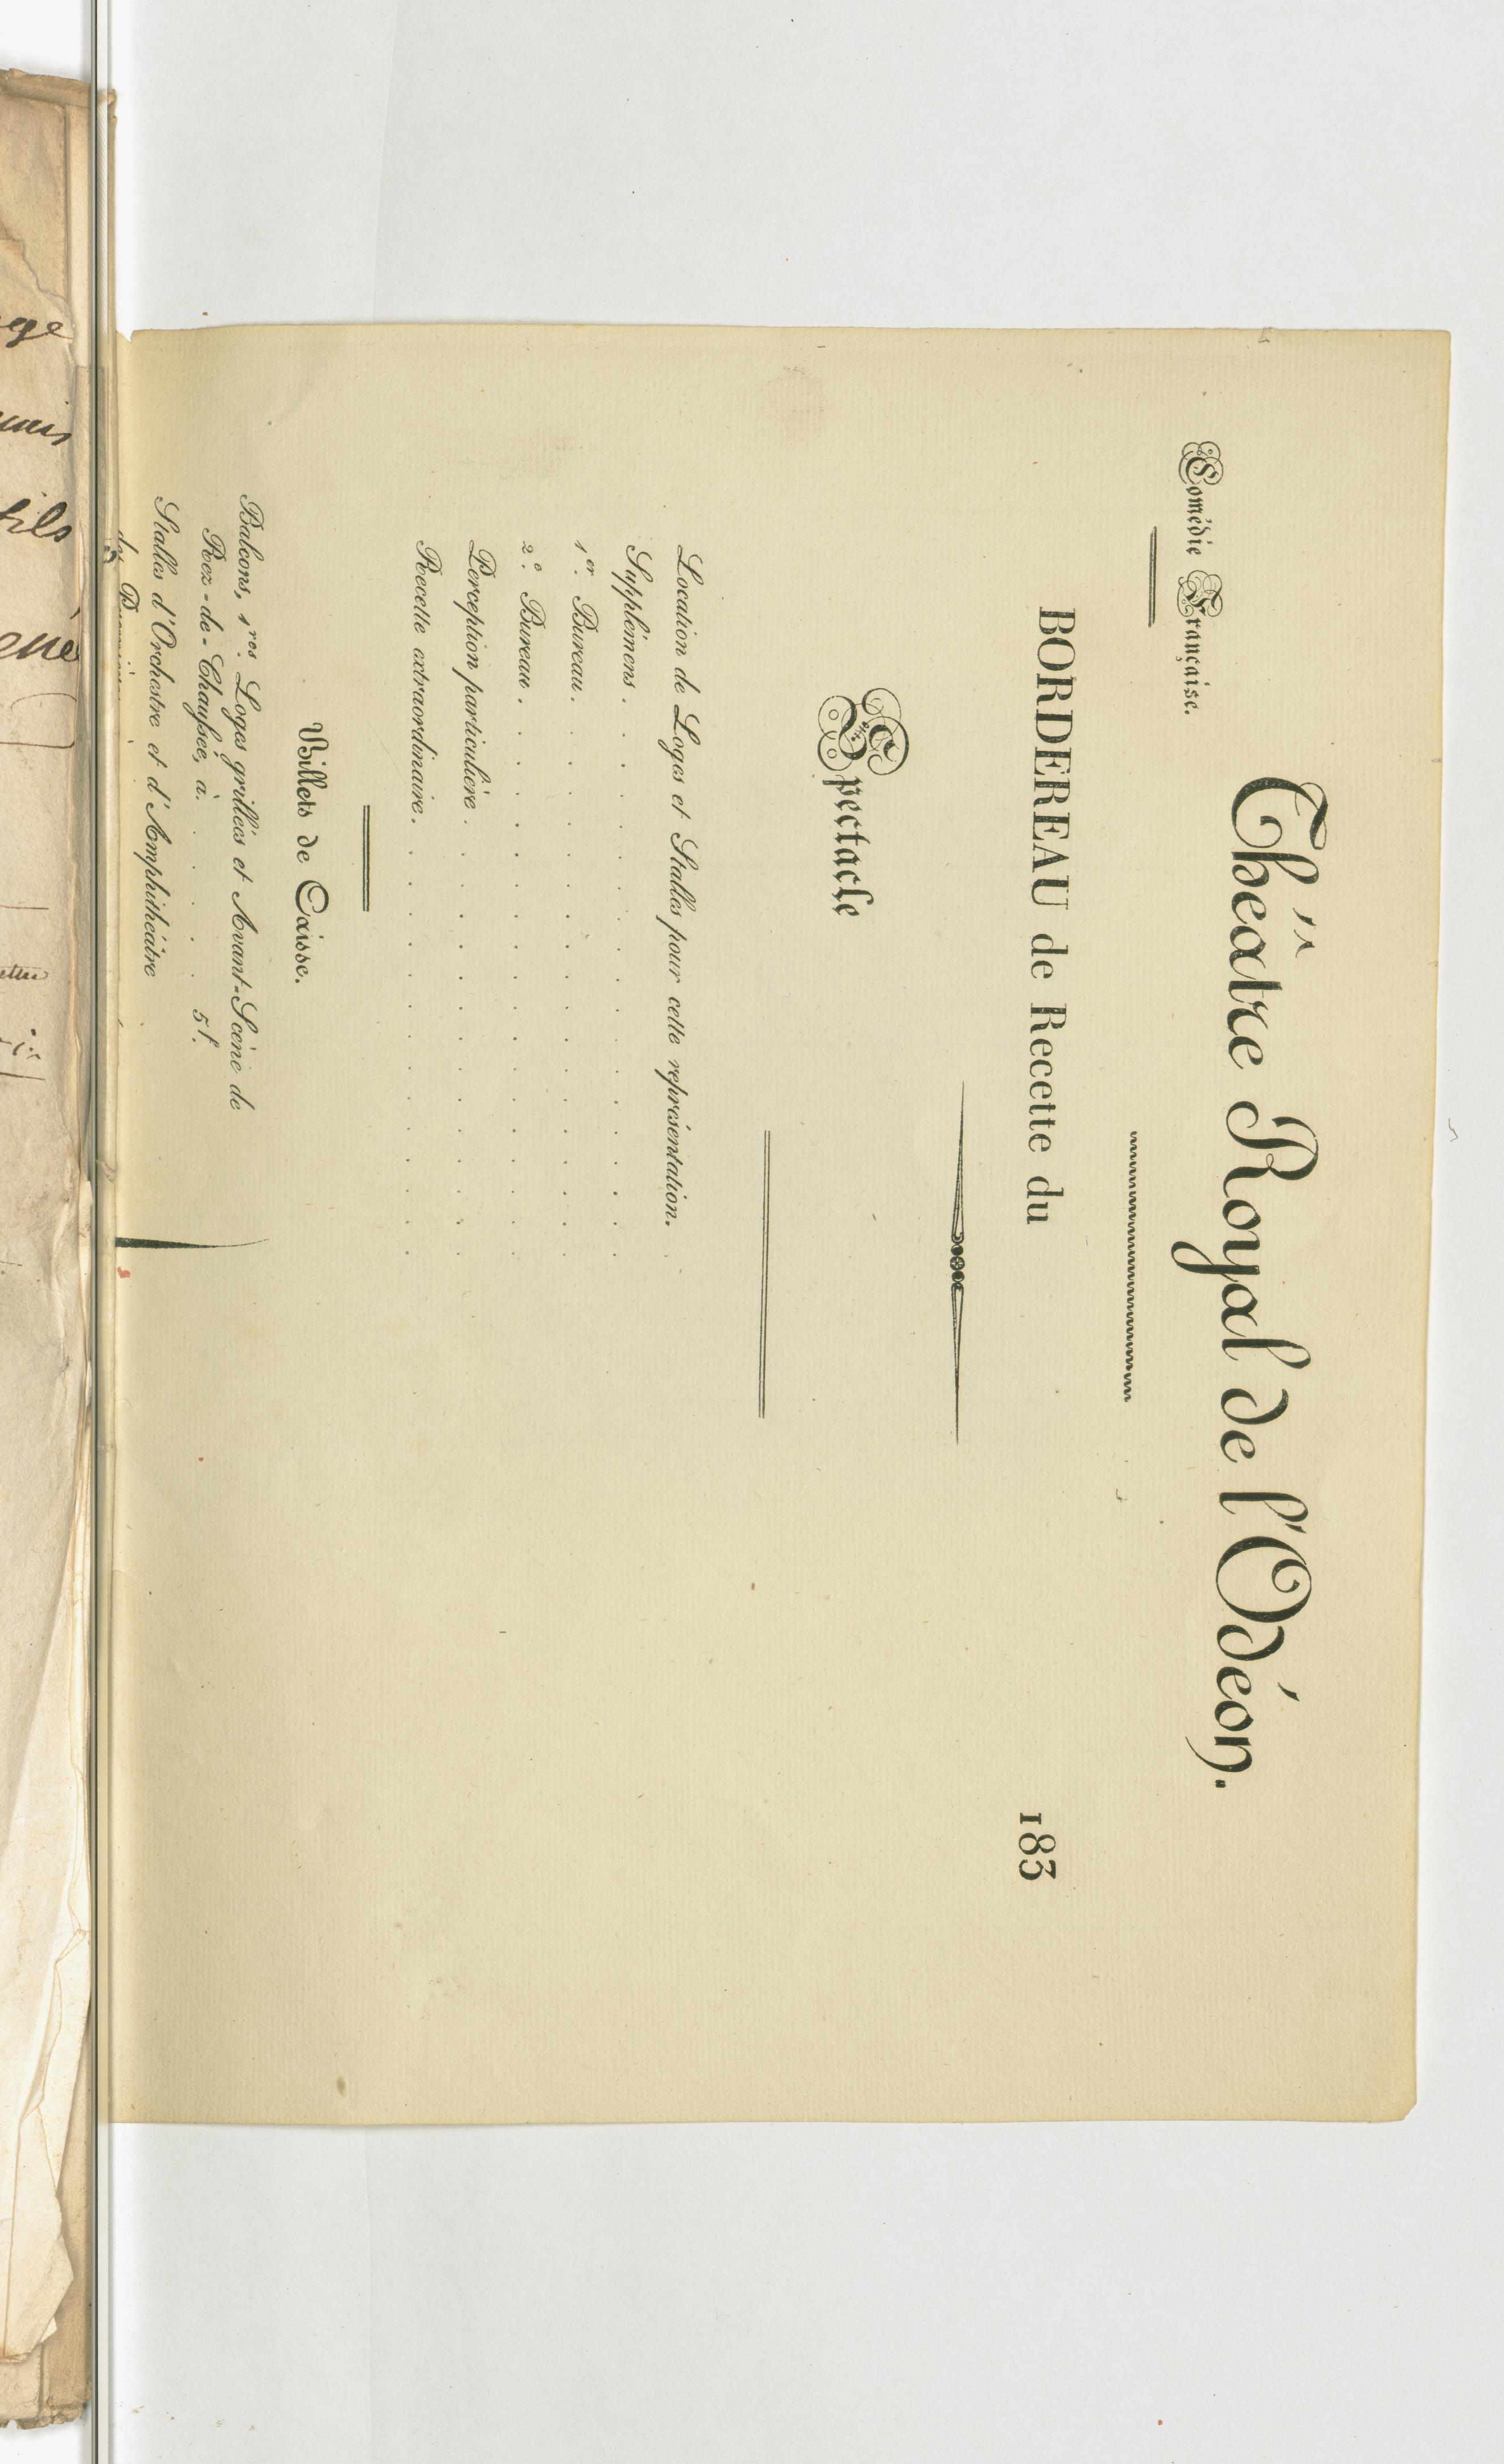 Théâtre Royal de l'Odéon.
Comédie Française.
BORDEREAU de Recette du 183
Spectacle
Location de Loges et Stalles pour cette représentation.
Supplémens.
1er. Bureau.
2e. Bureau.
Perception particulière.
Recette extraordinaire.
Billets de Caisse.
Balcons, 1res. Loges grillées et Avant-Scène de
Rez-de-Chaussée, à. 5f.
Stalles d'Orchestre et d'Amphithéâtre
des